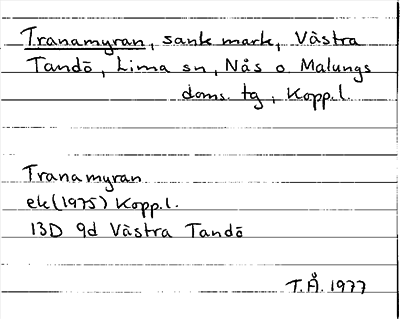 Tranamyran, sank mark, Västra
Tandö, Lima sn, Nås o Malungs
doms. tg, Kopp.l.
Tranamyran
ek(1975) Kopp.l.
13D 9d Västra Tandö
T.Å. 1977